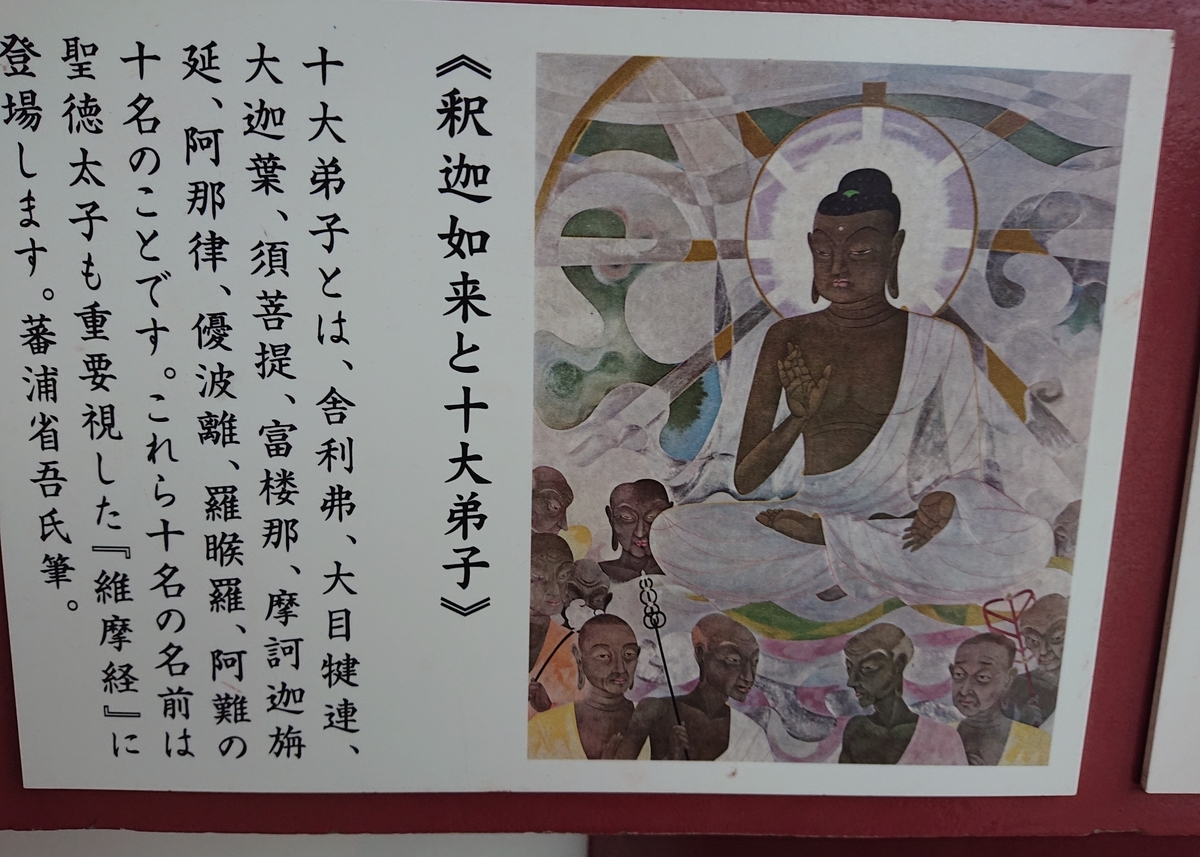 《釈迦如来と十大弟子》
十大弟子とは、舎利弗、大目犍連、
大迦葉、須菩提、富楼那、摩訶迦旃
延、阿那律、優波離、羅睺羅、阿難の
十名のことです。これら十名の名前は
聖徳太子も重要視した『維摩経』に
登場します。蕃浦省吾氏筆。